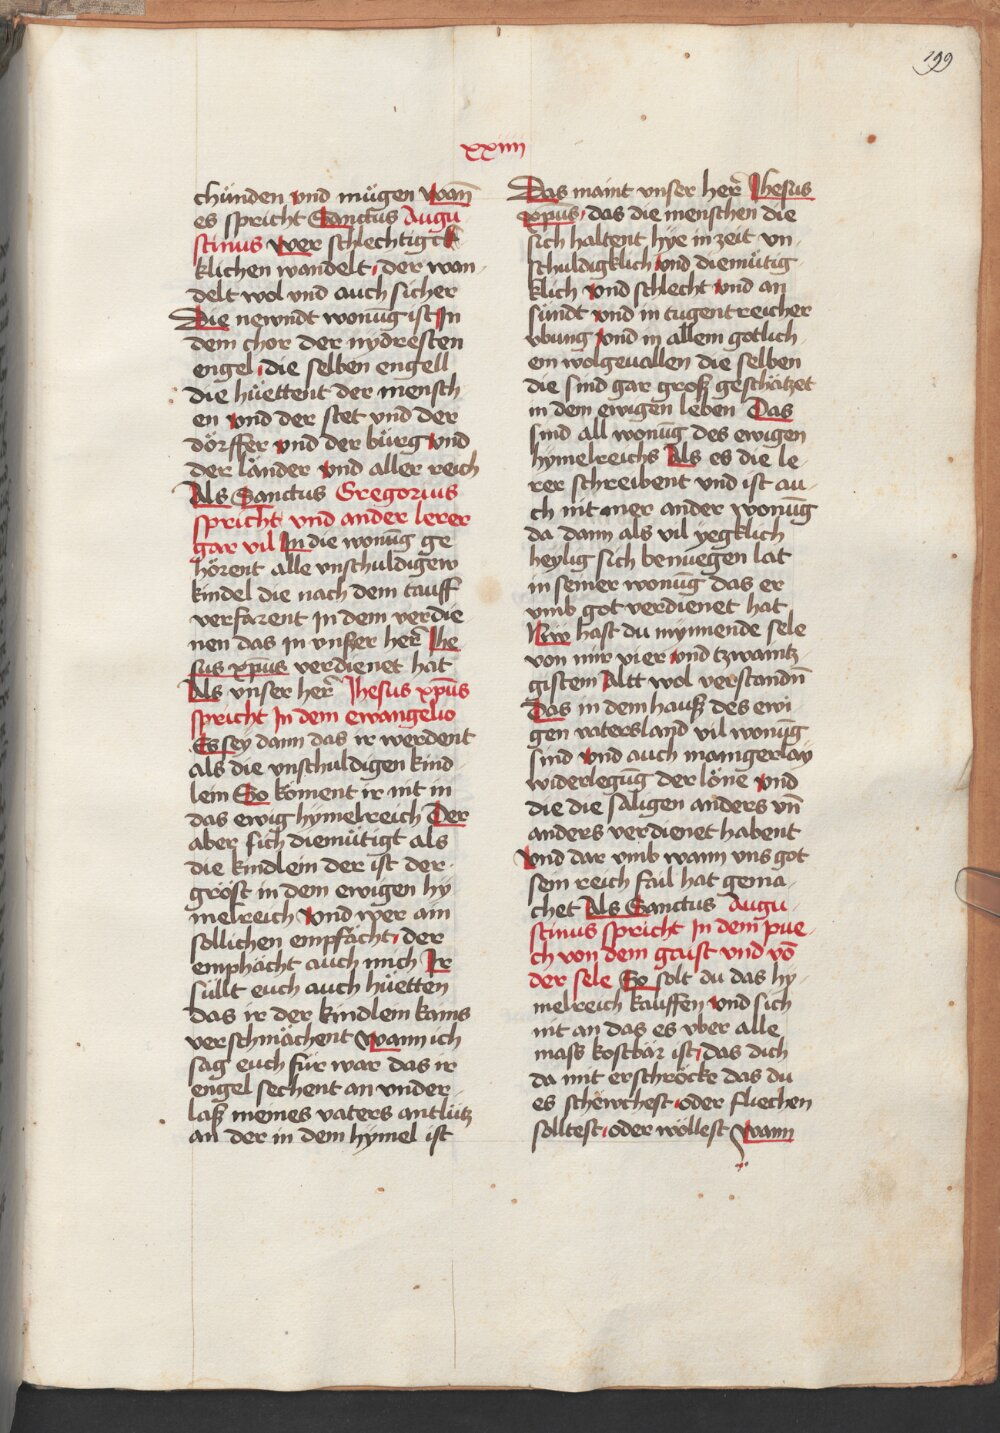 199
xxiiii
chünden vnd mügen wan̄
es spricht Sanctus Augu
stinus wer schlechtigk
klichen wandelt, der wan-
delt wol vnd auch sicher
Die newndt wonūg ist In
dem chor der nydresten
engel, die selben engell
die hüettent der mensch
en vnd der stet vnd der
dörffer vnd der bürg vnd
der länder vnd aller reich
Als Sanctus Gregorius
spricht vnd ander lerer
gar vil In die wonūg ge
hörent alle vnschuldigew
kindel die nach dem tauff
verfarent In dem verdie
nen das In vnser her̄ Jhe
sus xpus verdienet hat
Als vnser her̄ Jhesus xp̄us
spricht In dem ewangelio
Es sey dann das ir werdent
als die vnschuldigen kind-
lein So köment ir nit in
das ewig hymelreich Der
aber sich diemütigt als
die kindlein der ist der-
gröst in dem ewigen hy
melreich Vnd wer ain
sollichen empfächt, der
emphächt auch mich Ir
süllt euch auch hüetten
das ir der kindlein kains
verschmächent Wann ich
sag euch für war das ir
engel sechent an vnder-
laß meines vaters antlütz
an der in dem hymel ist
Das maint vnser her̄ Jhesus
xp̄us, das die menschen die
sich haltent hye in zeit vn-
schuldigklich vnd diemütig-
klich vnd schlecht vnd an
sündt vnd in tugentreicher
vbung vnd in allem gotlich-
em wolgeuallen die selben
die sind gar groß geschätzet
in dem ewigen leben Das
sind all wonūg des ewigen
hymelreichs Als es die le-
rer schreibent vnd ist au-
ch nit mer ander wonūg
da dann als vil yegklich
heylig sich benuegen lat
in seiner wonūg das er
vmb got verdienet hat
Nw hast du mynnende sele
von mir vier vnd tzwaintz-
gistem Altt wol verstandn̄
Das in dem hauß des ewi-
gen vatersland vil wonūg
sind vnd auch maingerlay
widerlegūg der löne vnd
die die säligen anders vn̄
anders verdienet habent
Vnd dar vmb wann vns got
sein reich fail hat gema-
chet Als Sanctus Augu-
stinus spricht In dem pue-
ch von dem gaist vnd vō
der sele So solt du das hy-
melreich kauffen vnd sich
nit an das es vber alle
mass kostbär ist, das dich
da mit erschröcke das du
es schewchest, oder fliechen
solltest, oder wöllest Wann